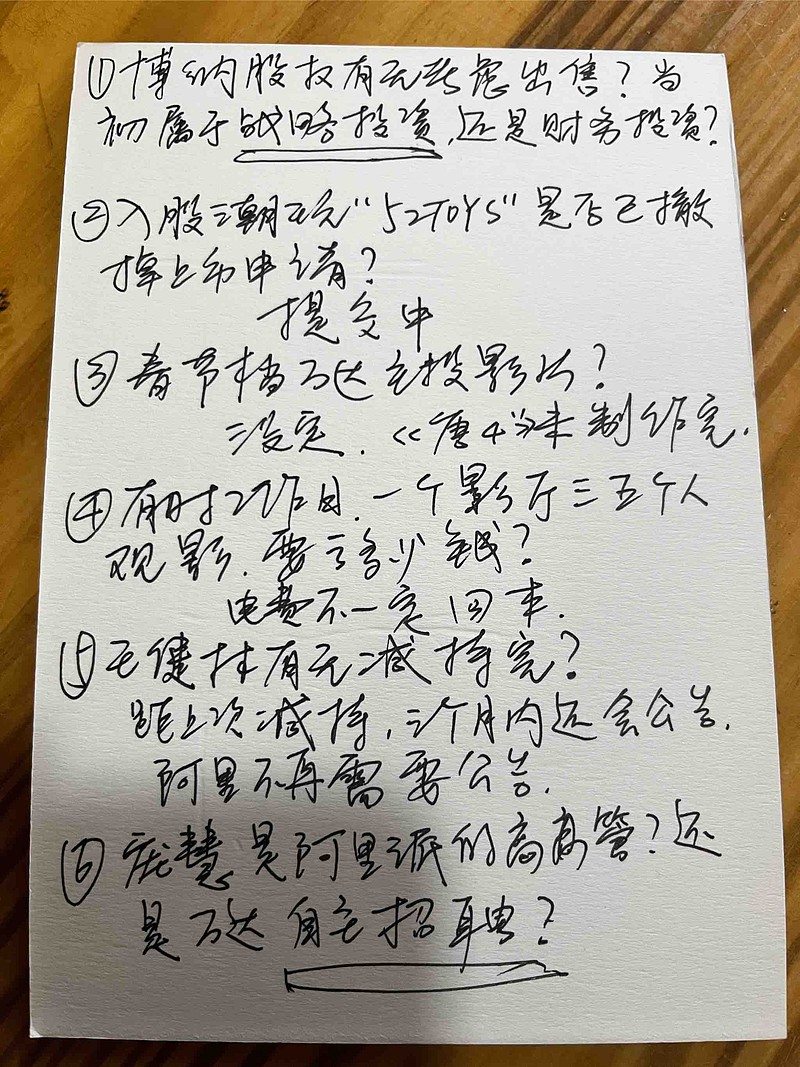 ①博纳股权有无考虑出售？当
初属于战略投资，还是财务投资？
②入股潮玩“52TOYS”是否已撤
掉上市申请？
提交中
③春节档万达主投影片？
没定．《唐4》未制作完．
④有时工作日．一个影厅三五个人
观影．要亏多少钱？
电费不一定回本．
⑤王健林有无减持完？
距上次减持，三个月内还会公告．
阿里不再需要公告．
⑥庞慧是阿里派的高管？还
是万达自主招聘？